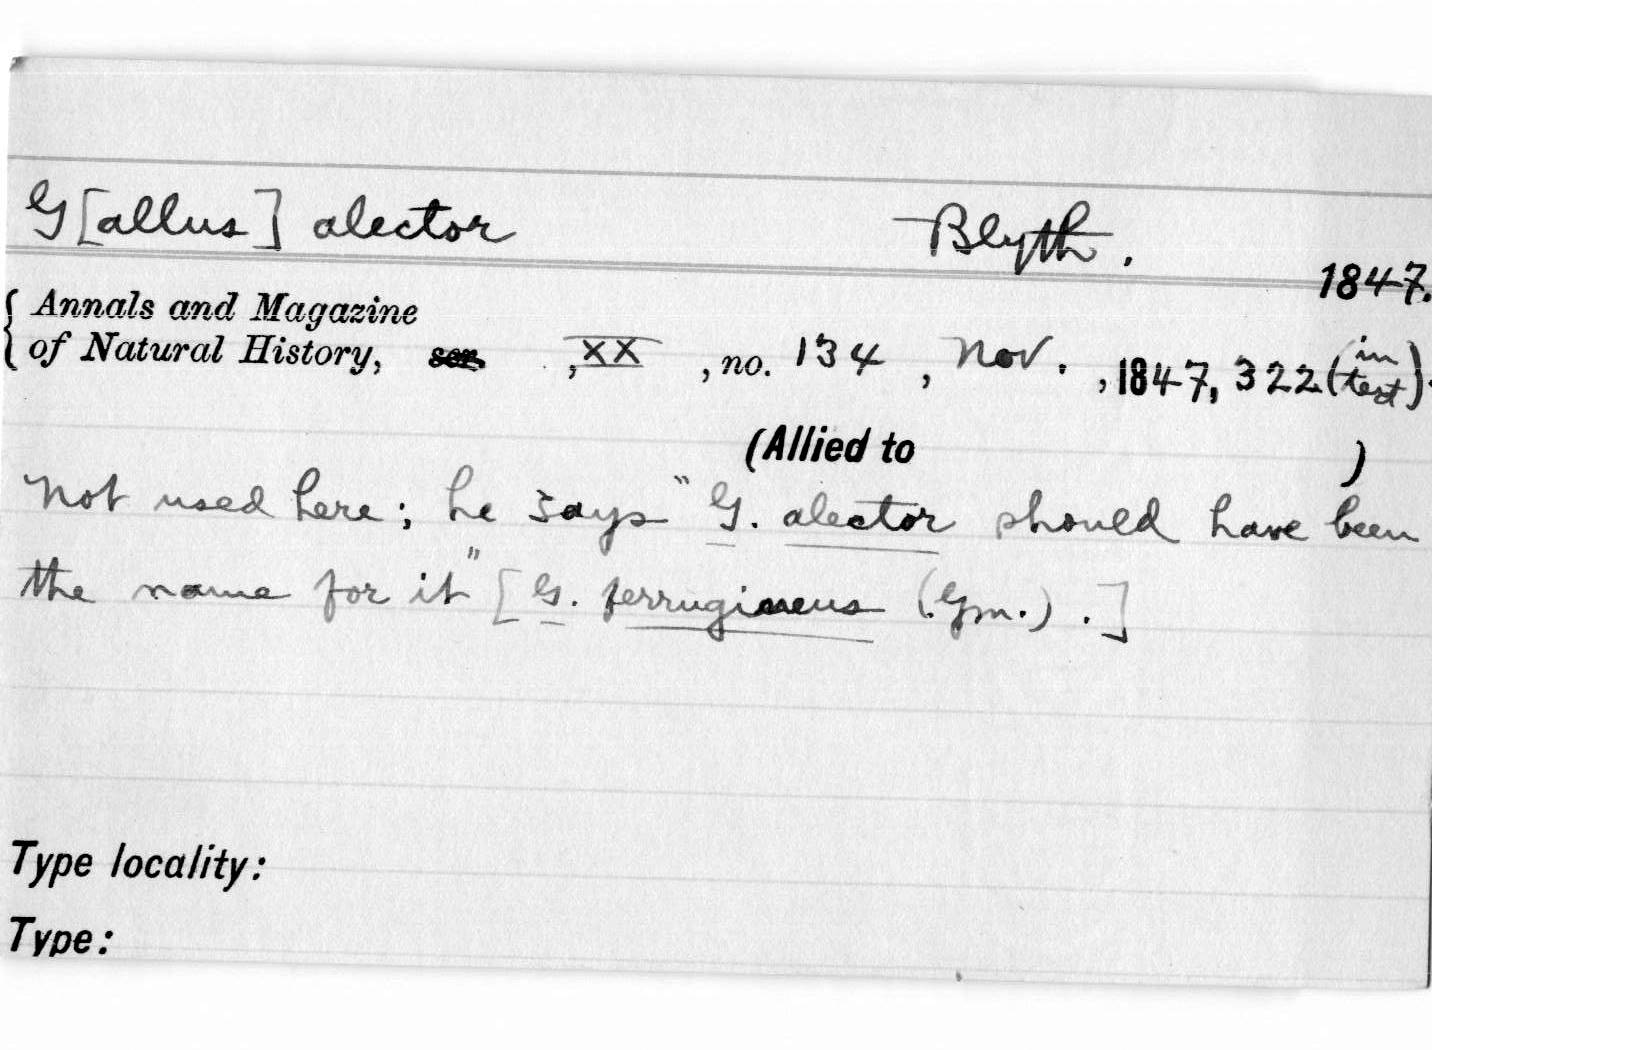 G[allus] alector Blyth.
1847.
{ Annals and Magazine
of Natural History, ser. , XX , no. 134 , Nov. , 1847, 322 (in text).
(Allied to )
Not used here; he says "G. alector should have been
the name for it" [G. ferrugineus (Gm.).]
Type locality:
Type: